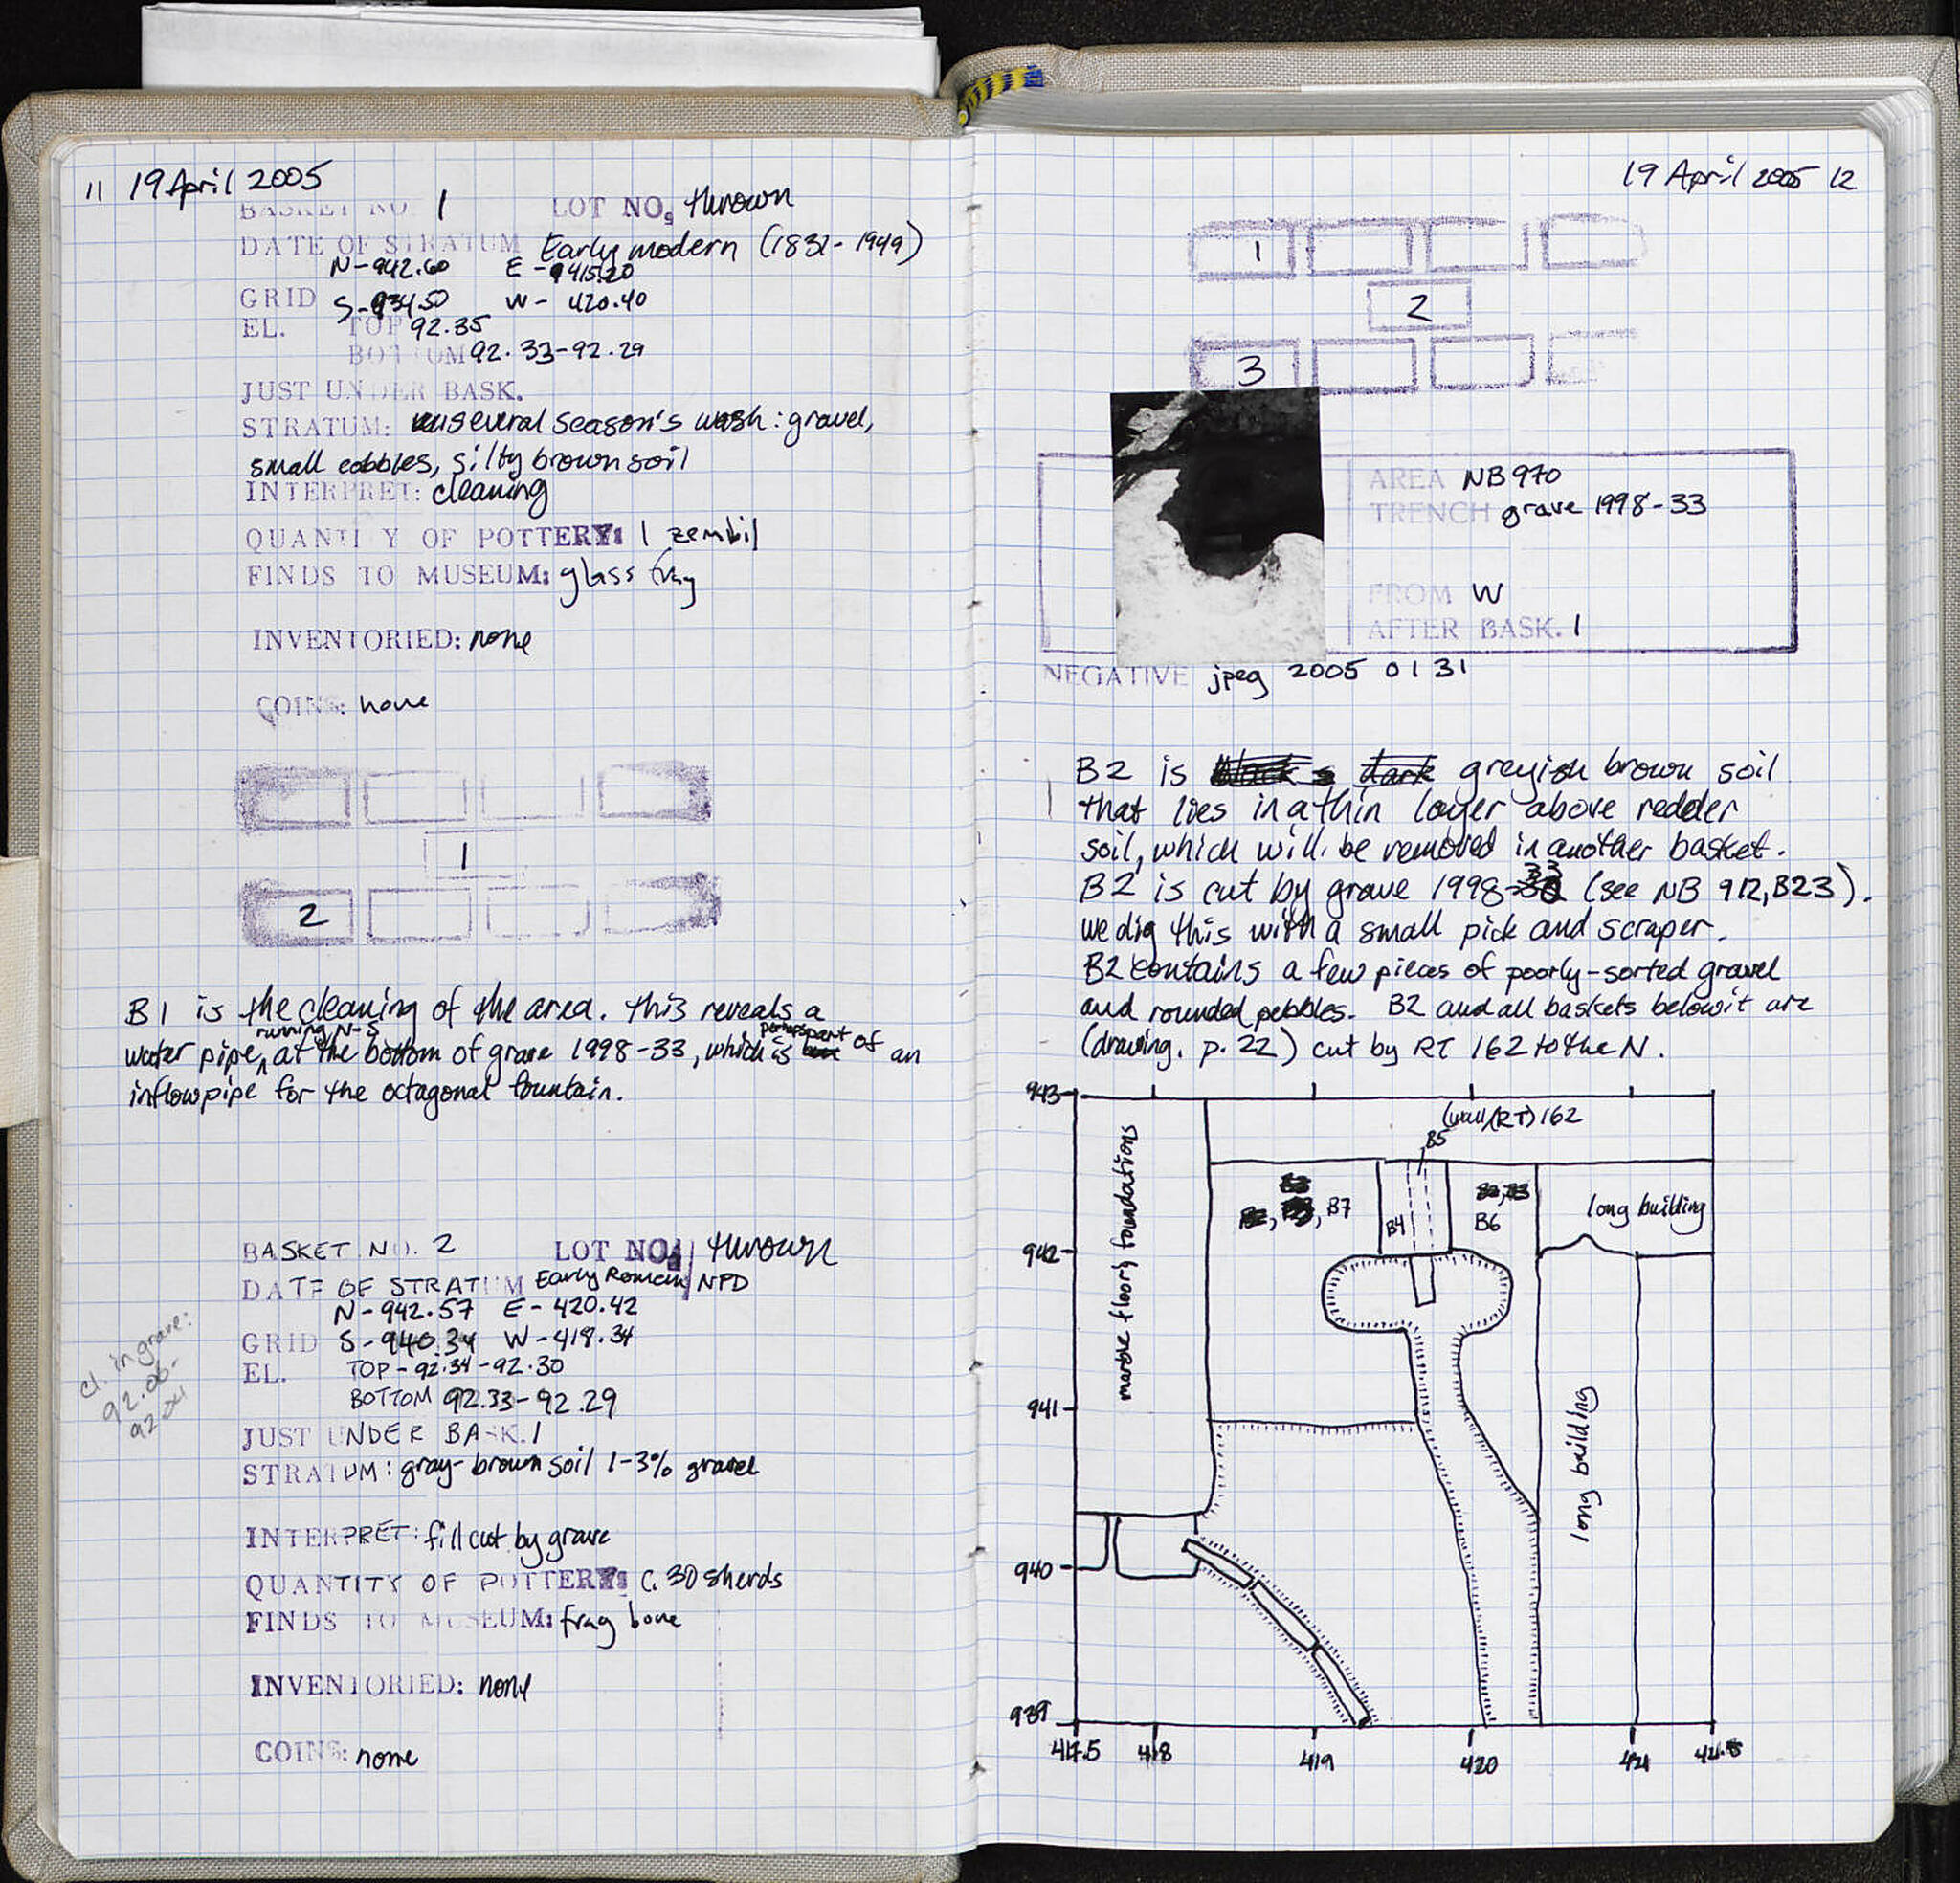 11 19 April 2005
BASKET NO. 1 LOT NO. thrown
DATE OF STRATUM Early modern (1831-1949)
N-942.60 E-415.20
GRID S-934.50 W- 420.40
EL. TOP 92.35
BOTTOM 92.33-92.29
JUST UNDER BASK.
STRATUM: several season's wash: gravel,
small cobbles, silty brown soil
INTERPRET: cleaning
QUANTITY OF POTTERY: 1 zembil
FINDS TO MUSEUM: glass frag
INVENTORIED: none
COINS: none
1
2
B1 is the cleaning of the area. This reveals a
running N-S perhaps part of
water pipe, at the bottom of grave 1998-33, which is an
inflow pipe for the octagonal fountain.
BASKET NO. 2 LOT NO. thrown
DATE OF STRATUM Early Roman/NPD
N-942.57 E-420.42
GRID S-940.34 W-418.34
EL. TOP-92.34-92.30
BOTTOM 92.33-92.29
cl. in grave:
92.06-
92.04
JUST UNDER BASK. 1
STRATUM: gray-brown soil 1-3% gravel
INTERPRET: fill cut by grave
QUANTITY OF POTTERY: c. 30 sherds
FINDS TO MUSEUM: frag bone
INVENTORIED: none
COINS: none
19 April 2005 12
1
2
3
AREA NB 970
TRENCH grave 1998-33
FROM W
AFTER BASK. 1
NEGATIVE jpeg 2005 0131
B2 is black s dark greyish brown soil
that lies in a thin layer above redder
soil, which will be removed in another basket.
33
B2 is cut by grave 1998- (see NB 912, B23).
we dig this with a small pick and scraper.
B2 contains a few pieces of poorly-sorted gravel
and rounded pebbles. B2 and all baskets below it are
(drawing. p. 22) cut by RT 162 to the N.
943
(wall/RT) 162
B5
marble floor foundations
B7
B4
B6
long building
942
941
long building
940
939
417.5 418 419 420 421 421.5